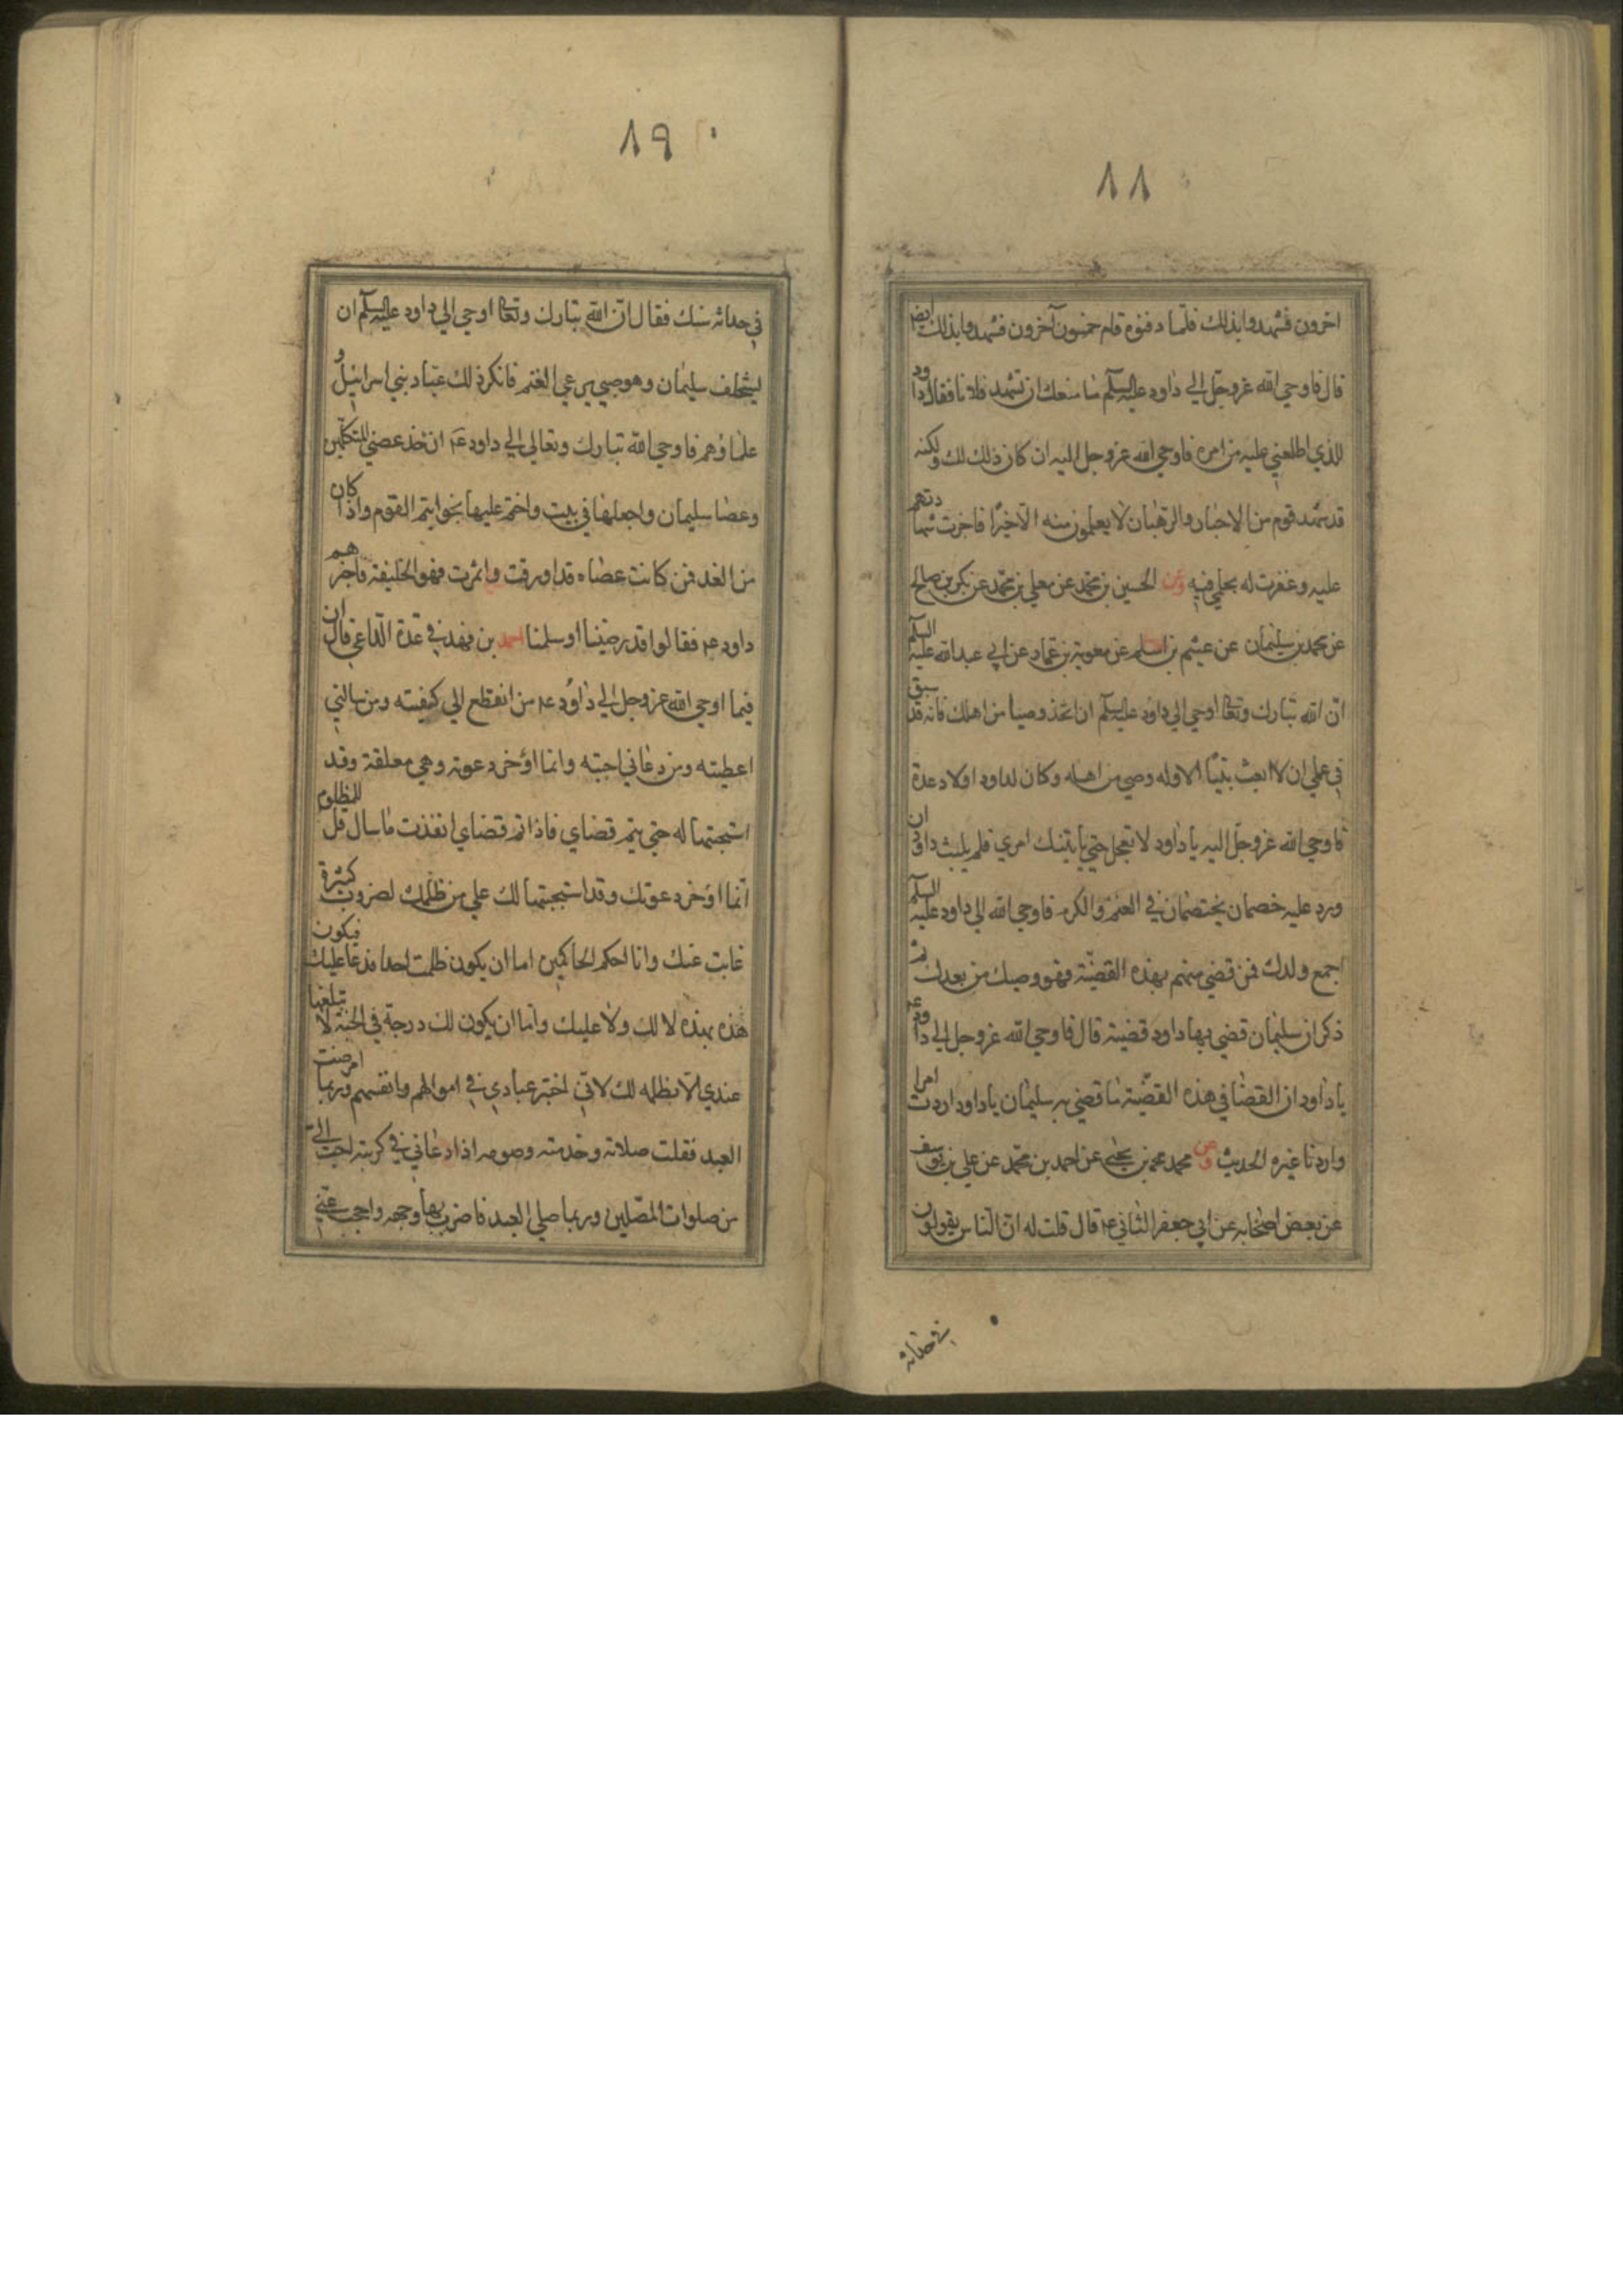 ٨٨
اخرون فشهدوا بذلك فلما دفنوه قام خمسون آخرون فشهدوا بذلك ايضا
قال فاوحي الله عز وجل الي داود عليه السلم ما منعك ان تشهد فلانا فقال داود
للذي اطلعتني عليه من امره فاوحي الله عز وجل اليه ان كان ذلك لك ولكنه
قد شهد قوم من الاحبار والرهبان لا يعلمون منه الا خيرا فاجزت شهادتهم
عليه وغفرت له بعلمي فيه وعن الحسين بن محمد عن معلي بن محمد عن بكر بن صالح
عن محمد بن سليمان عن عيثم بن اسلم عن معوية بن عمار عن ابي عبد الله عليه السلم
ان الله تبارك وتعا اوحي الي داود عليه السلم ان اتخذ وصيا من اهلك فانه قد سبق
في علمي ان لا ابعث نبيا الا وله وصي من اهله وكان لداود اولاد عدة
فاوحي الله عز وجل اليه يا داود لا تعجل حتي ياتيك امري فلم يلبث داود ان
ورد عليه خصمان يختصمان في الغنم والكرم فاوحي الله الي داود عليه السلم
اجمع ولدك فمن قضي منهم بهذه القضية فهو وصيك من بعدك ثم
ذكر ان سليمان قضي بها داود قضية قال فاوحي الله عز وجل الي داود ع
يا داود ان القضا في هذه القضية ما قضي به سليمان يا داود اردت امرا
واردنا غيره الحديث وعن محمد بن يحيي عن احمد بن محمد عن علي بن يوسف
عن بعض اصحابه عن ابي جعفر الثاني ع قال قلت له ان الناس يقولون
في حداثة
٨٩
في حداثة سنك فقال ان الله تبارك وتعا اوحي الي داود عليه السلم ان
يستخلف سليمان وهو صبي يرعي الغنم فانكر ذلك عباد بني اسرائيل و
علماؤهم فاوحي الله تبارك وتعالي الي داود ع ان خذ عصي المتكلمين
وعصا سليمان واجعلها في بيت واختم عليها بخواتيم القوم واذا كان
من الغد فمن كانت عصاه قد اورقت واثمرت فهو الخليفة فاخبرهم
داود ع فقالوا قد رضينا وسلمنا احمد بن فهد في عدة الداعي قال ان
فيما اوحي الله عز وجل الي داود ع من انقطع الي كفيته ومن سالني
اعطيته ومن دعاني اجبته وانما اؤخر دعوته وهي معلقة وقد
استجبتها له حتي يتم قضاي فاذا تم قضاي انفذت ما سال قل للمظلوم
انما اؤخر دعوتك وقد استجبتها لك علي من ظلمك لضروب كثيرة
غابت عنك وانا احكم الحاكمين اما ان يكون ظلمت احدا فدعا عليك فيكون
هذه بهذه لا لك ولا عليك واما ان يكون لك درجة في الجنة لا تبلغها
عندي الا بظلمه لك لاني اختبر عبادي في اموالهم وانفسهم وربما امرضت
العبد فقلت صلاته وخدمته وصومه اذا دعاني في كربته احب الي
من صلوات المصلين وربما صلي العبد فاضرب بها وجهه واحجب عني